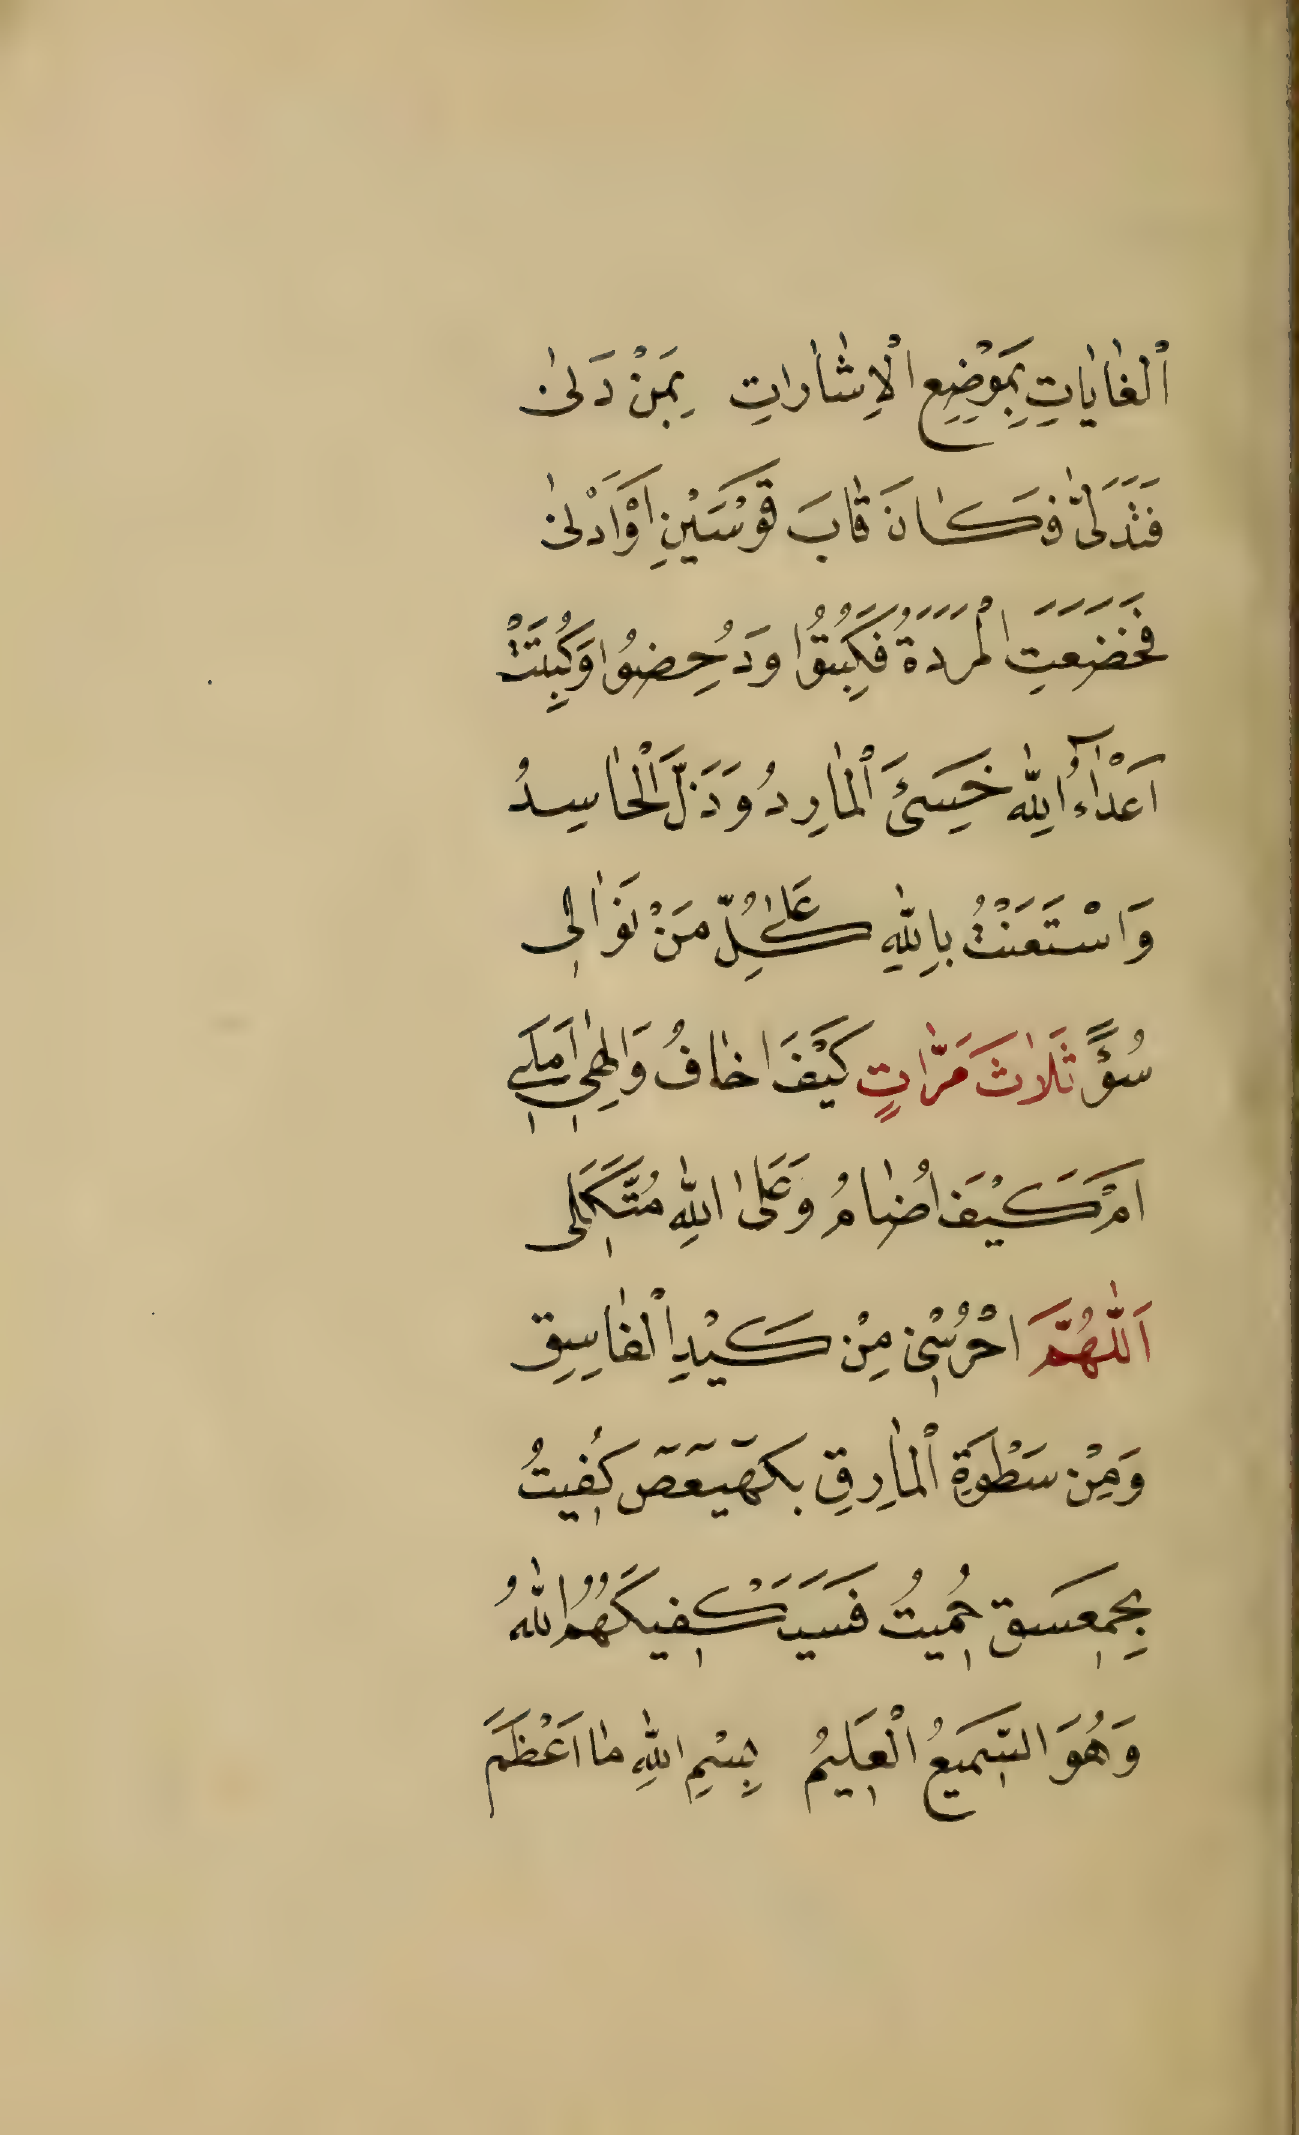 اَلْغَايَاتِ بِمَوْضِعِ الْاِشَارَاتِ بِمَنْ دَنٰى
فَتَدَلّٰى فَكَانَ قَابَ قَوْسَيْنِ اَوْ اَدْنٰى
فَخَضَعَتِ الْمَرَدَةُ فَكُبِتُوا وَدُحِضُوا وَكُبِتَتْ
اَعْدَاءُ اللّٰهِ خَسِئَ الْمَارِدُ وَذَلَّ الْحَاسِدُ
وَاسْتَعَنْتُ بِاللّٰهِ عَلٰى كُلِّ مَنْ نَوٰى لِى
سُوْءً ثَلَاثَ مَرَّاتٍ كَيْفَ اَخَافُ وَاِلٰهِى اَمَلِى
اَمْ كَيْفَ اُضَامُ وَعَلَى اللّٰهِ مُتَّكَلِى
اَللّٰهُمَّ احْرُسْنِى مِنْ كَيْدِ الْفَاسِقِ
وَمِنْ سَطْوَةِ الْمَارِقِ بِكهٰيٰعٓصٓ كُفِيتُ
بِحمٓعٓسٓقٓ حُمِيتُ فَسَيَكْفِيكَهُمُ اللّٰهُ
وَهُوَ السَّمِيعُ الْعَلِيمُ بِسْمِ اللّٰهِ مَا اَعْظَمَ